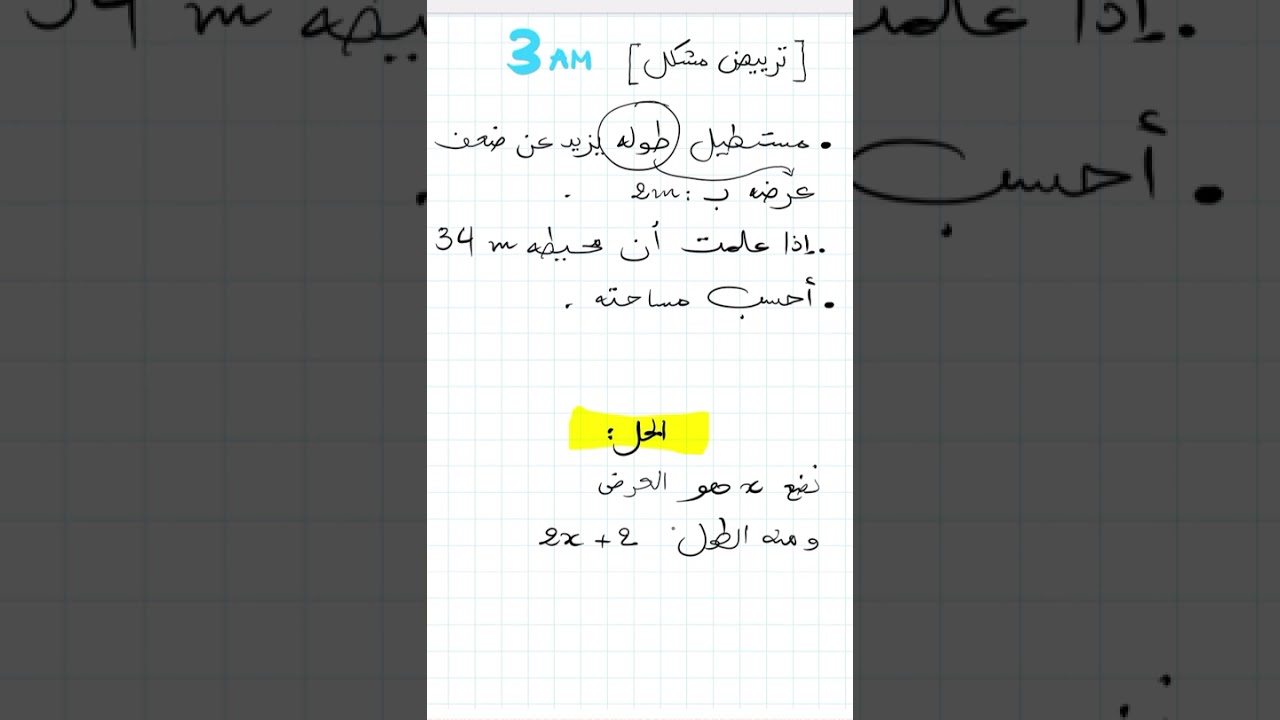 [تربيض مشكل] 3 AM
• مستطيل طوله يزيد عن ضعف
عرضه ب : 2m .
• إذا علمت أن محيطه 34 m
• أحسب مساحته .
الحل :
نضع x هو العرض
و منه الطول: 2x + 2